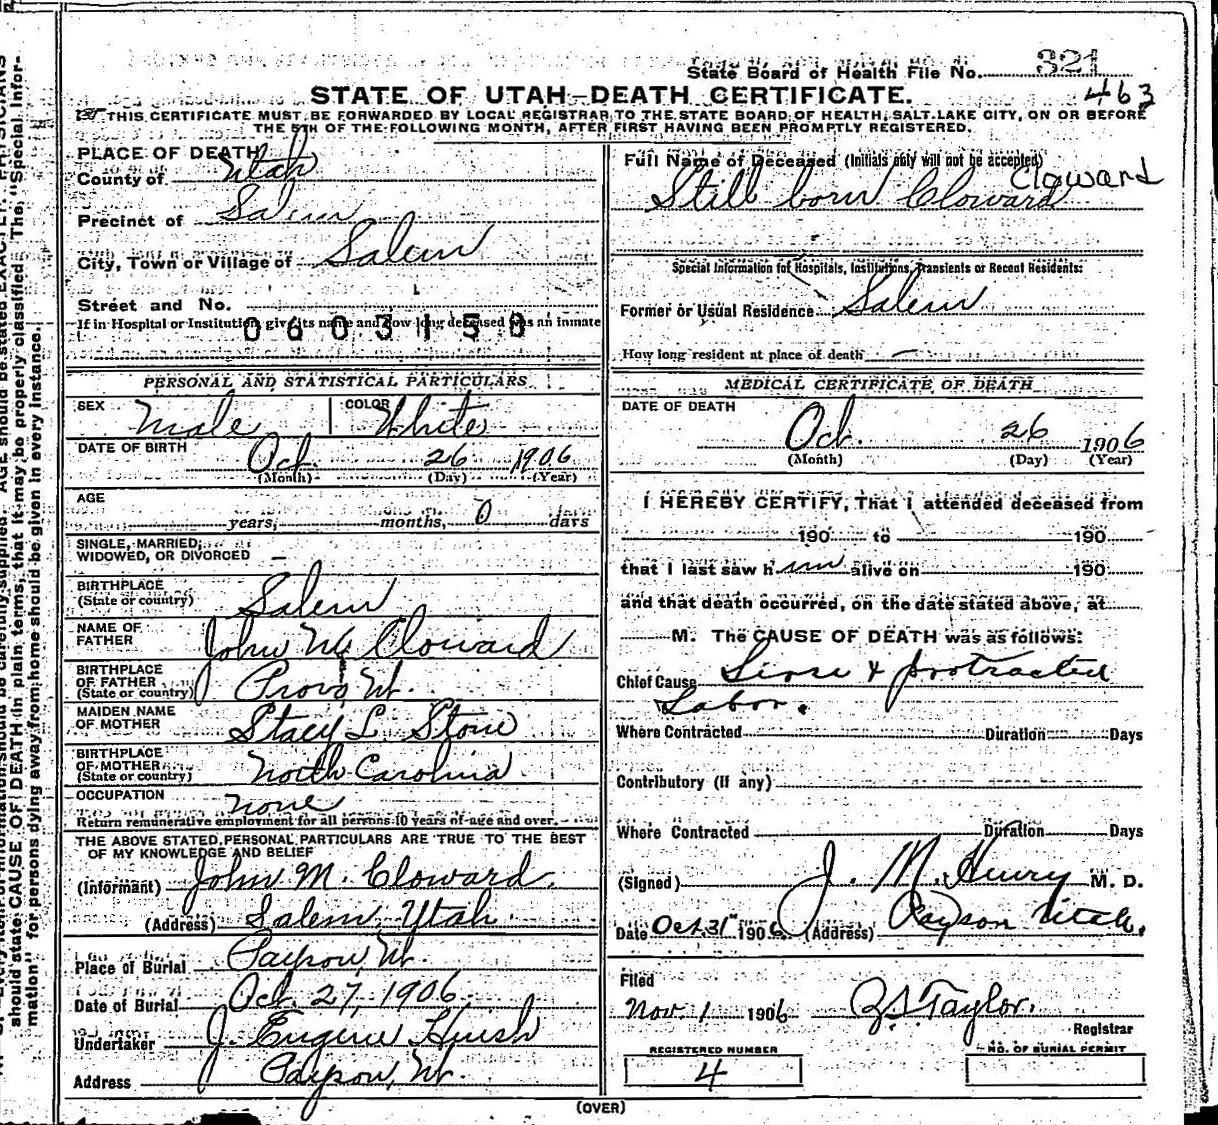 State Board of Health File No. 321
463
STATE OF UTAH-DEATH CERTIFICATE.
THIS CERTIFICATE MUST BE FORWARDED BY LOCAL REGISTRAR TO THE STATE BOARD OF HEALTH, SALT LAKE CITY, ON OR BEFORE
THE 5TH OF THE FOLLOWING MONTH, AFTER FIRST HAVING BEEN PROMPTLY REGISTERED.
PLACE OF DEATH
County of Utah
Precinct of Salem
City, Town or Village of Salem
Street and No.
If in Hospital or Institution, give its name and how long deceased was an inmate
0603150
PERSONAL AND STATISTICAL PARTICULARS
SEX Male COLOR White
DATE OF BIRTH Oct. 26 1906
(Month) (Day) (Year)
AGE
years, months, 0 days
SINGLE, MARRIED,
WIDOWED, OR DIVORCED —
BIRTHPLACE
(State or country) Salem
NAME OF
FATHER John M. Cloward
BIRTHPLACE
OF FATHER
(State or country) Provo Ut.
MAIDEN NAME
OF MOTHER Stacy L. Stone
BIRTHPLACE
OF MOTHER
(State or country) North Carolina
OCCUPATION none
Return remunerative employment for all persons 10 years of age and over.
THE ABOVE STATED PERSONAL PARTICULARS ARE TRUE TO THE BEST
OF MY KNOWLEDGE AND BELIEF
(Informant) John M. Cloward.
(Address) Salem, Utah.
Place of Burial Payson, Ut.
Date of Burial Oct. 27, 1906.
Undertaker J. Eugene Huish
Address Payson, Ut.
Full Name of Deceased (Initials only will not be accepted)
Cloward
Still born Cloward
Special Information for Hospitals, Institutions, Transients or Recent Residents:
Former or Usual Residence Salem
How long resident at place of death —
MEDICAL CERTIFICATE OF DEATH
DATE OF DEATH
Oct. 26 1906
(Month) (Day) (Year)
I HEREBY CERTIFY, That I attended deceased from
190 to 190
that I last saw him alive on 190
and that death occurred, on the date stated above, at
M. The CAUSE OF DEATH was as follows:
Chief Cause & protracted
Labor.
Where Contracted Duration Days
Contributory (if any)
Where Contracted Duration Days
(Signed) J. M. Henry M. D.
Date Oct. 31st 1906 (Address) Payson Utah.
Filed
Nov 1 1906 Taylor.
Registrar
REGISTERED NUMBER
4
NO. OF BURIAL PERMIT
(OVER)
should state CAUSE OF DEATH in plain terms, that it may be properly classified. The "Special Infor-
mation" for persons dying away from home should be given in every instance.